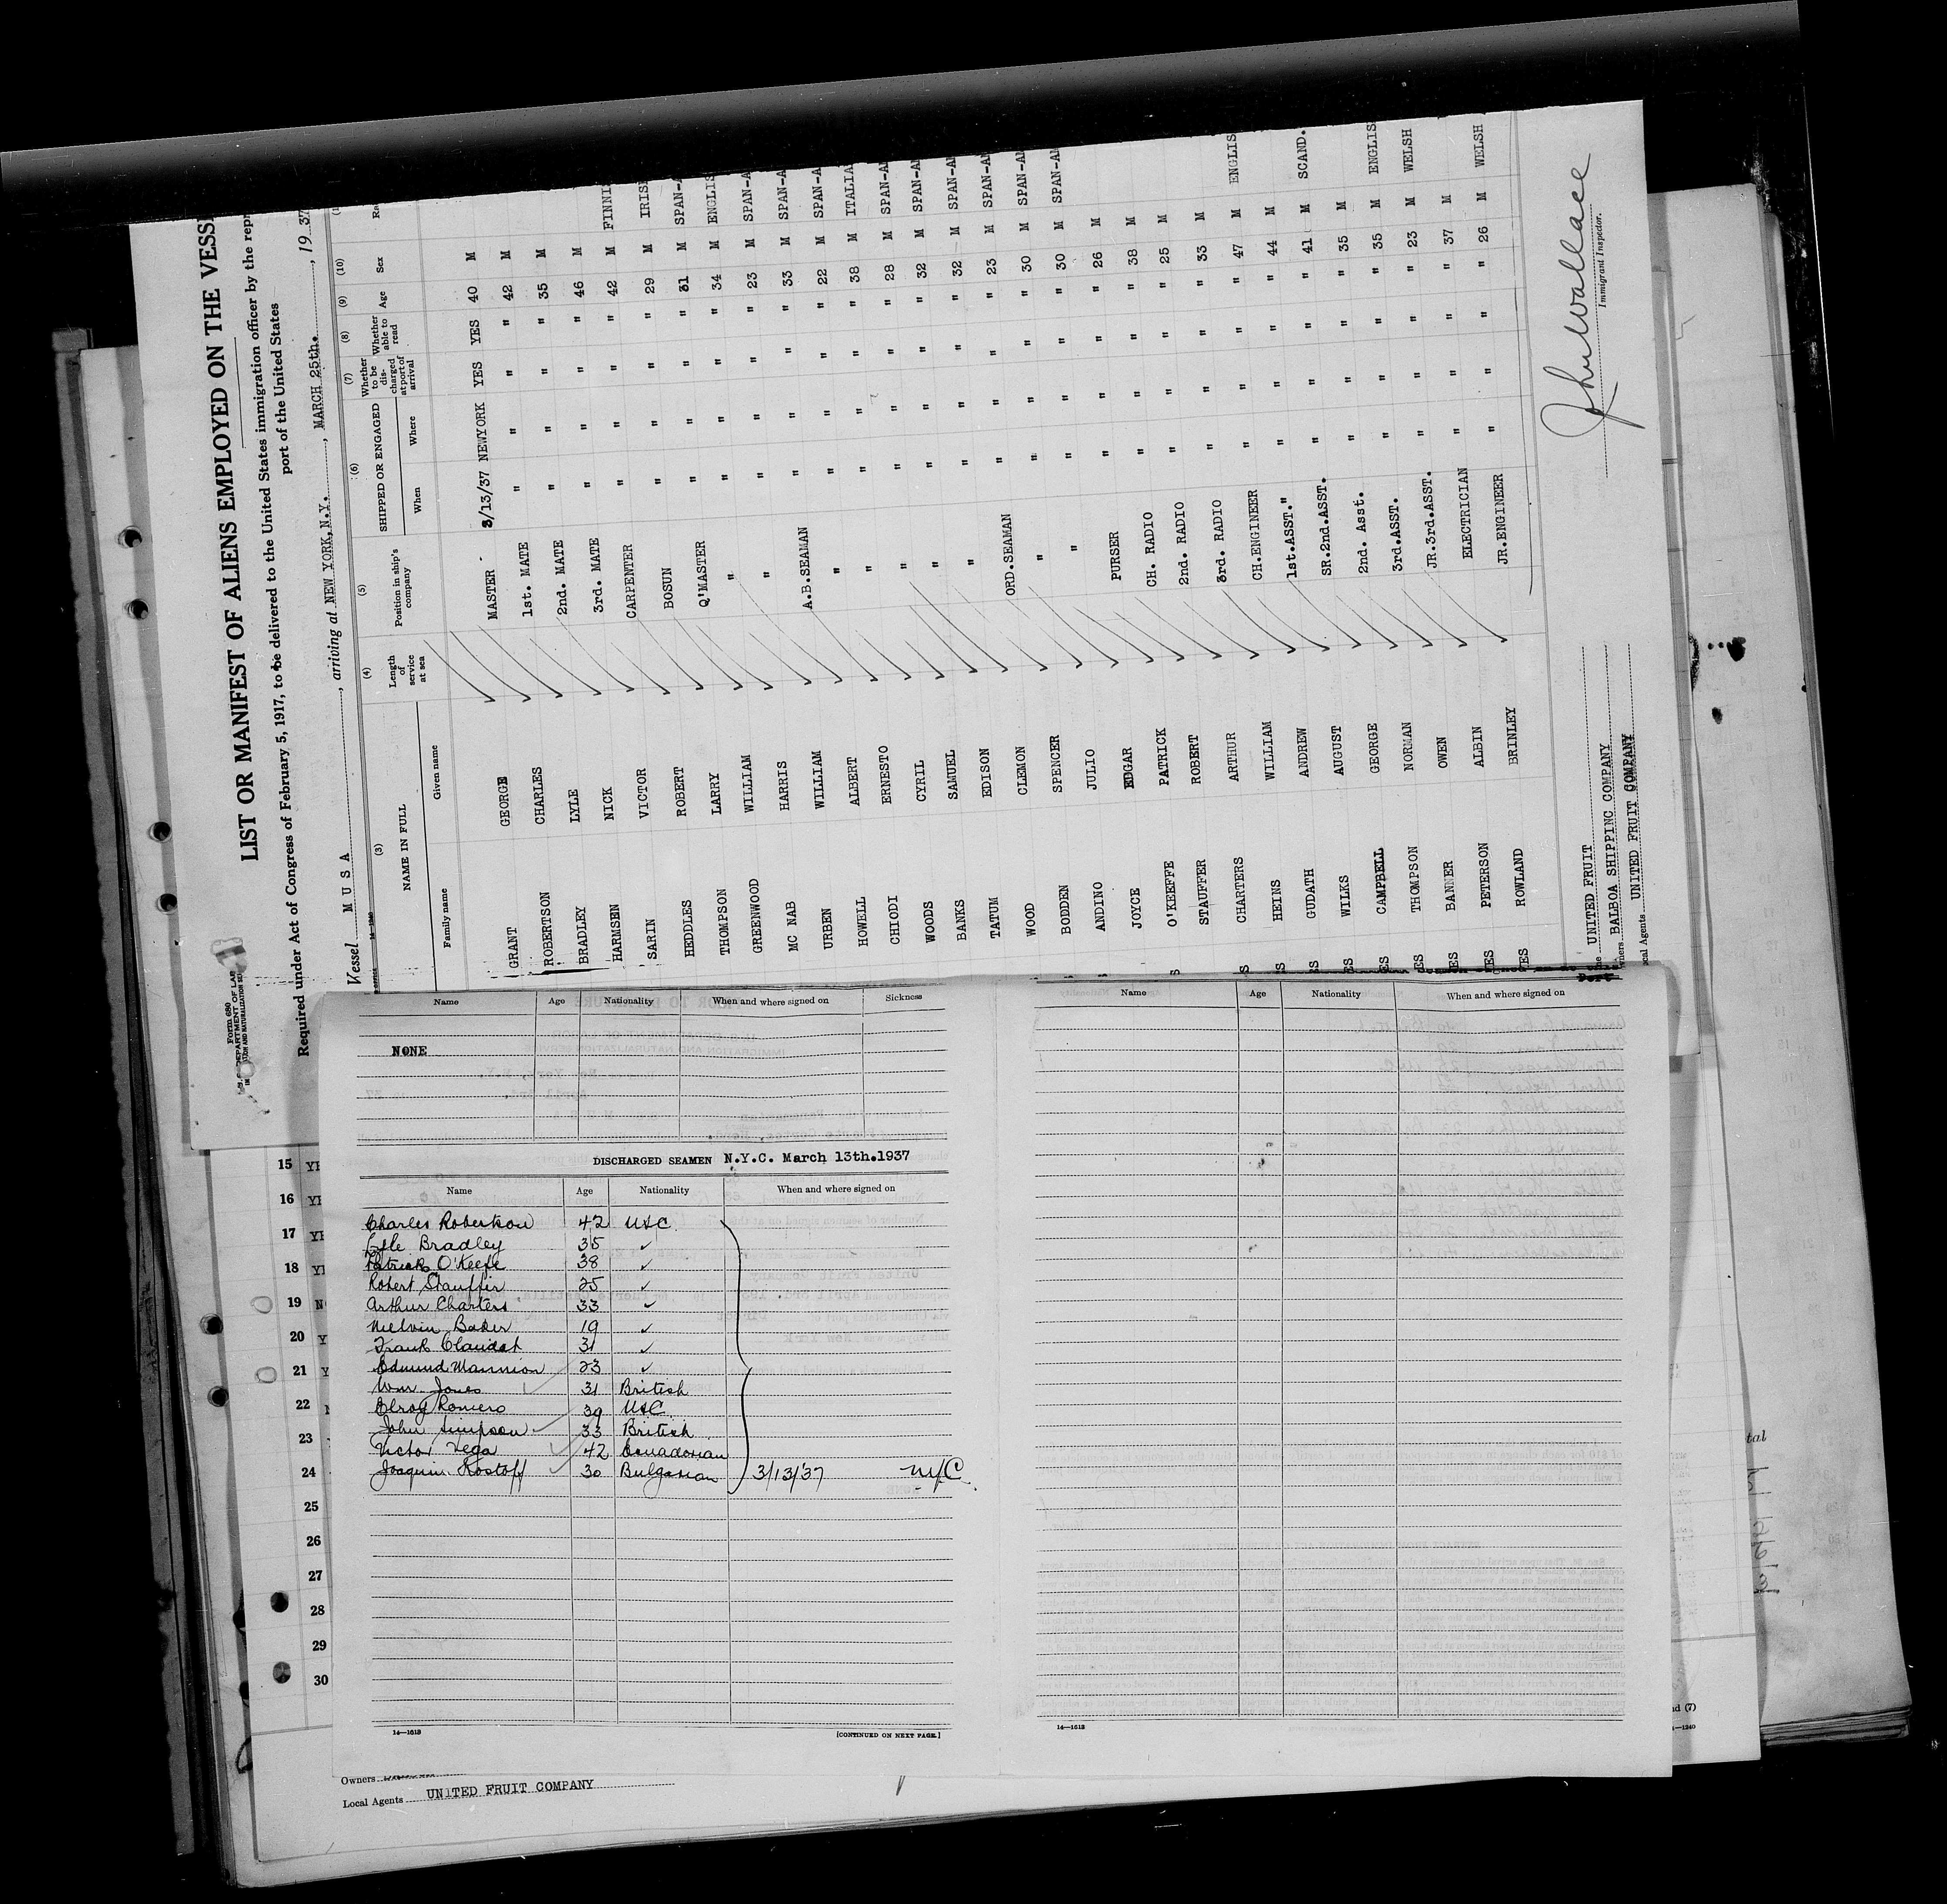 Form 680
LIST OR MANIFEST OF ALIENS EMPLOYED ON THE VESS
Required under Act of Congress of February 5, 1917, to be delivered to the United States immigration officer by the repr
port of the United States
Vessel MUSA, arriving at NEW YORK,N.Y., MARCH 25th., 1937
(3) (4) (5) (6) (7) (8) (9) (10)
NAME IN FULL Length of service at sea Position in ship's company SHIPPED OR ENGAGED Whether to be discharged at port of arrival Whether able to read Age Sex
Family name Given name When Where
GRANT GEORGE MASTER 3/13/37 NEWYORK YES YES 40 M
ROBERTSON CHARLES 1st. MATE " " " " 42 M
BRADLEY LYLE 2nd. MATE " " " " 35 M
HARMSEN NICK 3rd. MATE " " " " 46 M
SARIN VICTOR CARPENTER " " " " 42 M FINNI
HEDDLES ROBERT BOSUN " " " " 29 M IRISH
THOMPSON LARRY Q'MASTER " " " " 31 M SPAN-A
GREENWOOD WILLIAM " " " " " 34 M ENGLIS
MC NAB HARRIS " " " " " 23 M SPAN-AM
URBEN WILLIAM A.B.SEAMAN " " " " 33 M SPAN-AM
HOWELL ALBERT " " " " " 22 M SPAN-AM
CHIODI ERNESTO " " " " " 38 M ITALIA
WOODS CYRIL " " " " " 28 M SPAN-AM
BANKS SAMUEL " " " " " 32 M SPAN-AM
TATUM EDISON " " " " " 32 M SPAN-AM
WOOD CLEMON ORD.SEAMAN " " " " 23 M SPAN-AM
BODDEN SPENCER " " " " " 30 M SPAN-AM
ANDINO JULIO " " " " " 30 M SPAN-AM
JOYCE EDGAR PURSER " " " " 26 M
O'KEEFFE PATRICK CH. RADIO " " " " 38 M
STAUFFER ROBERT 2nd. RADIO " " " " 25 M
CHARTERS ARTHUR 3rd. RADIO " " " " 33 M
HEINS WILLIAM CH.ENGINEER " " " " 47 M ENGLIS
GUDATH ANDREW 1st.ASST." " " " " 44 M
WILKS AUGUST SR.2nd.ASST. " " " " 41 M SCAND.
CAMPBELL GEORGE 2nd. Asst. " " " " 35 M
THOMPSON NORMAN 3rd.ASST. " " " " 35 M ENGLIS
BANNER OWEN JR.3rd.ASST. " " " " 23 M WELSH
PETERSON ALBIN ELECTRICIAN " " " " 37 M
ROWLAND BRINLEY JR.ENGINEER " " " " 26 M WELSH
UNITED FRUIT
BALBOA SHIPPING COMPANY
UNITED FRUIT COMPANY
Immigrant Inspector.
Name Age Nationality When and where signed on Sickness
NONE
DISCHARGED SEAMEN N.Y.C. March 13th.1937
Name Age Nationality When and where signed on
Charles Robertson 42 USC
Lyle Bradley 35 ✓
Patrick O'Keefe 38 ✓
Robert Stauffer 25 ✓
Arthur Charters 33 ✓
Melvin Baker 19 ✓
Frank 31 ✓
Edmund Mannion 23 ✓
Wm. Jones 31 British
Elroy Romero 39 USC
John Simpson 33 British
Victor Vega 42 Ecuadorian
Joaquin Kostoff 30 Bulgarian 3/13/37 NYC
14—1613 [CONTINUED ON NEXT PAGE.]
Name Age Nationality When and where signed on
14—1613
15
16
17
18
19
20
21
22
23
24
25
26
27
28
29
30
Owners
Local Agents UNITED FRUIT COMPANY